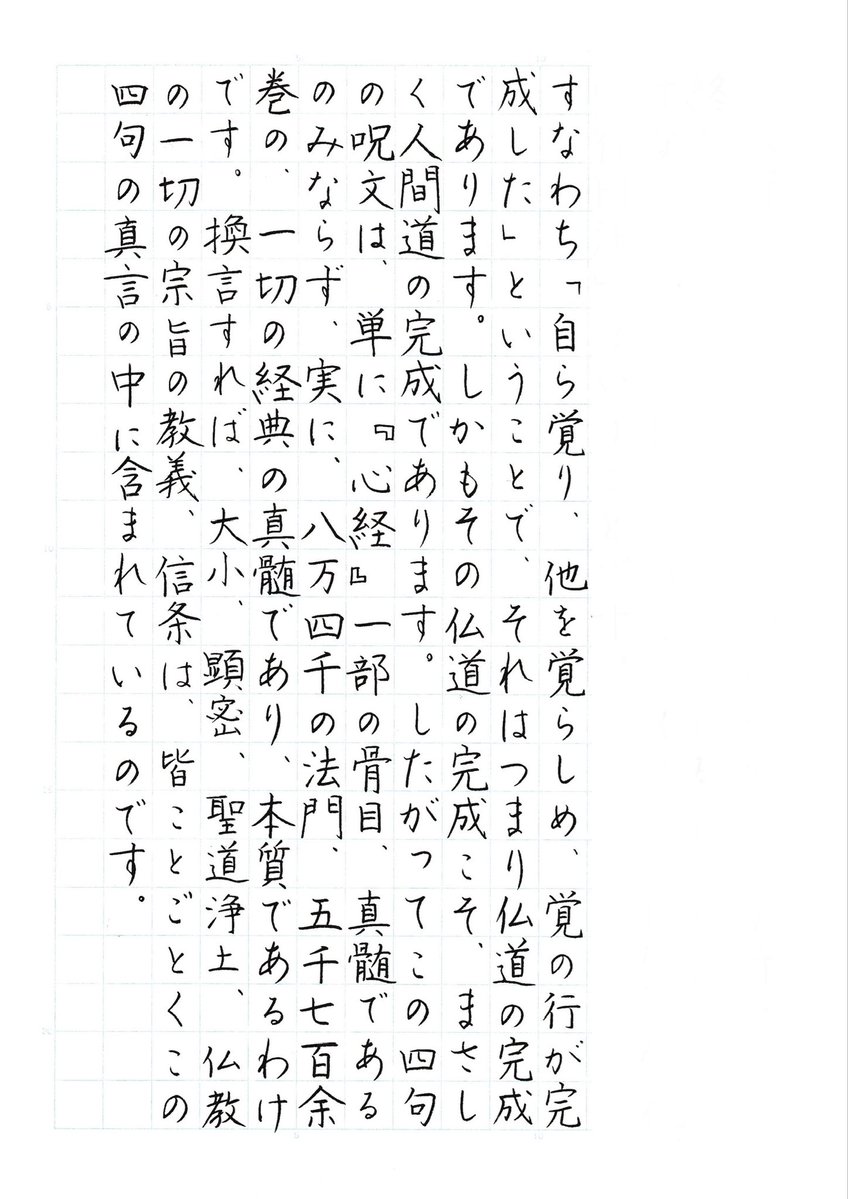 すなわち「自ら覚り、他を覚らしめ、覚の行が完
成した」ということで、それはつまり仏道の完成
であります。しかもその仏道の完成こそ、まさし
く人間道の完成であります。したがってこの四句
の呪文は、単に『心経』一部の骨目、真髄である
のみならず、実に、八万四千の法門、五千七百余
巻の、一切の経典の真髄であり、本質であるわけ
です。換言すれば、大小、顕密、聖道浄土、仏教
の一切の宗旨の教義、信条は、皆ことごとくこの
四句の真言の中に含まれているのです。